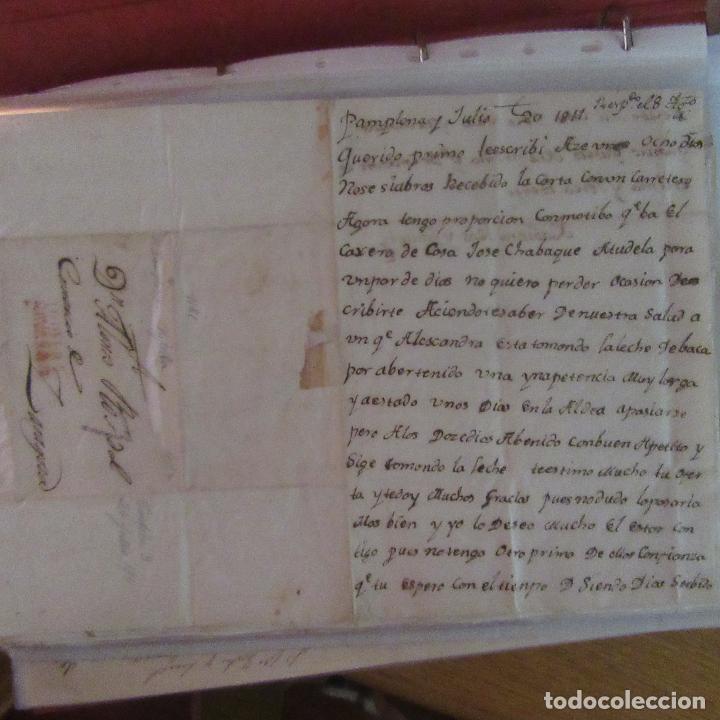 Pamplona y Julio 20 1811. Resp.do el 8 Ag.to
Querido primo teescribi Aze unos Ocho dias
Nose siabras Recebido la Carta Conun Carretero
Agora tengo proporcion Conmotibo q.e ba El
Caxero de Casa Jose Chabaque Atudela para
unpar de dias no quiero perder Ocasion Dees
cribirte Aciendotesaber Denuestra Salud a
un q.e Alescandra Esta tomando laleche Debaca
por abertenido una ynapetencia Muy larga
y aestado unos Dias Enla Aldea apasiarse
pero Alos Dozedias Abenido conbuen Apetito y
Sige tomando la leche teestimo Mucho tu Ofer
ta ytedoy Muchos Gracias puesnodudo lopasaria
Mas bien y yo lo Deseo Mucho El Estar con
tigo pues notengo Otro primo De Mas Confianza
q.e tu espero con eltienpo D Siendo Dios Serbido
Dn
Correo
Zaragoza
todocoleccion.net